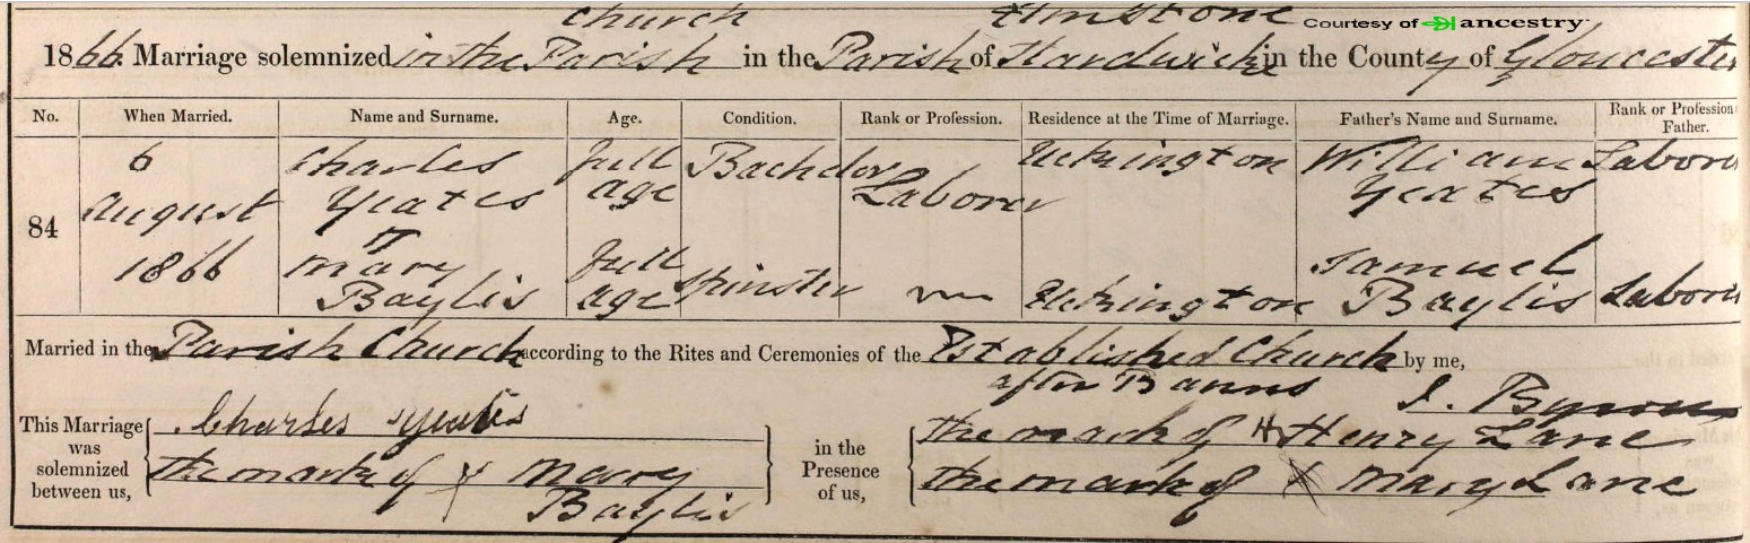 Church Elmstone Courtesy of ancestry
1866. Marriage solemnized in the Parish in the Parish of Hardwicke in the County of Gloucester
No. When Married. Name and Surname. Age. Condition. Rank or Profession. Residence at the Time of Marriage. Father's Name and Surname. Rank or Profession Father.
6 Charles full Bachelor Uckington William Labore
84 August Yeates age Laborer Yeates
1866 Mary full Spinster Samuel
Baylis age Uckington Baylis Labore
Married in the Parish Church according to the Rites and Ceremonies of the Established Church by me,
after Banns J. Byron
This Marriage Charles Yeates in the the mark of Henry Lane
was
solemnized the mark of X Mary Presence the mark of X Mary Lane
between us, Baylis of us,